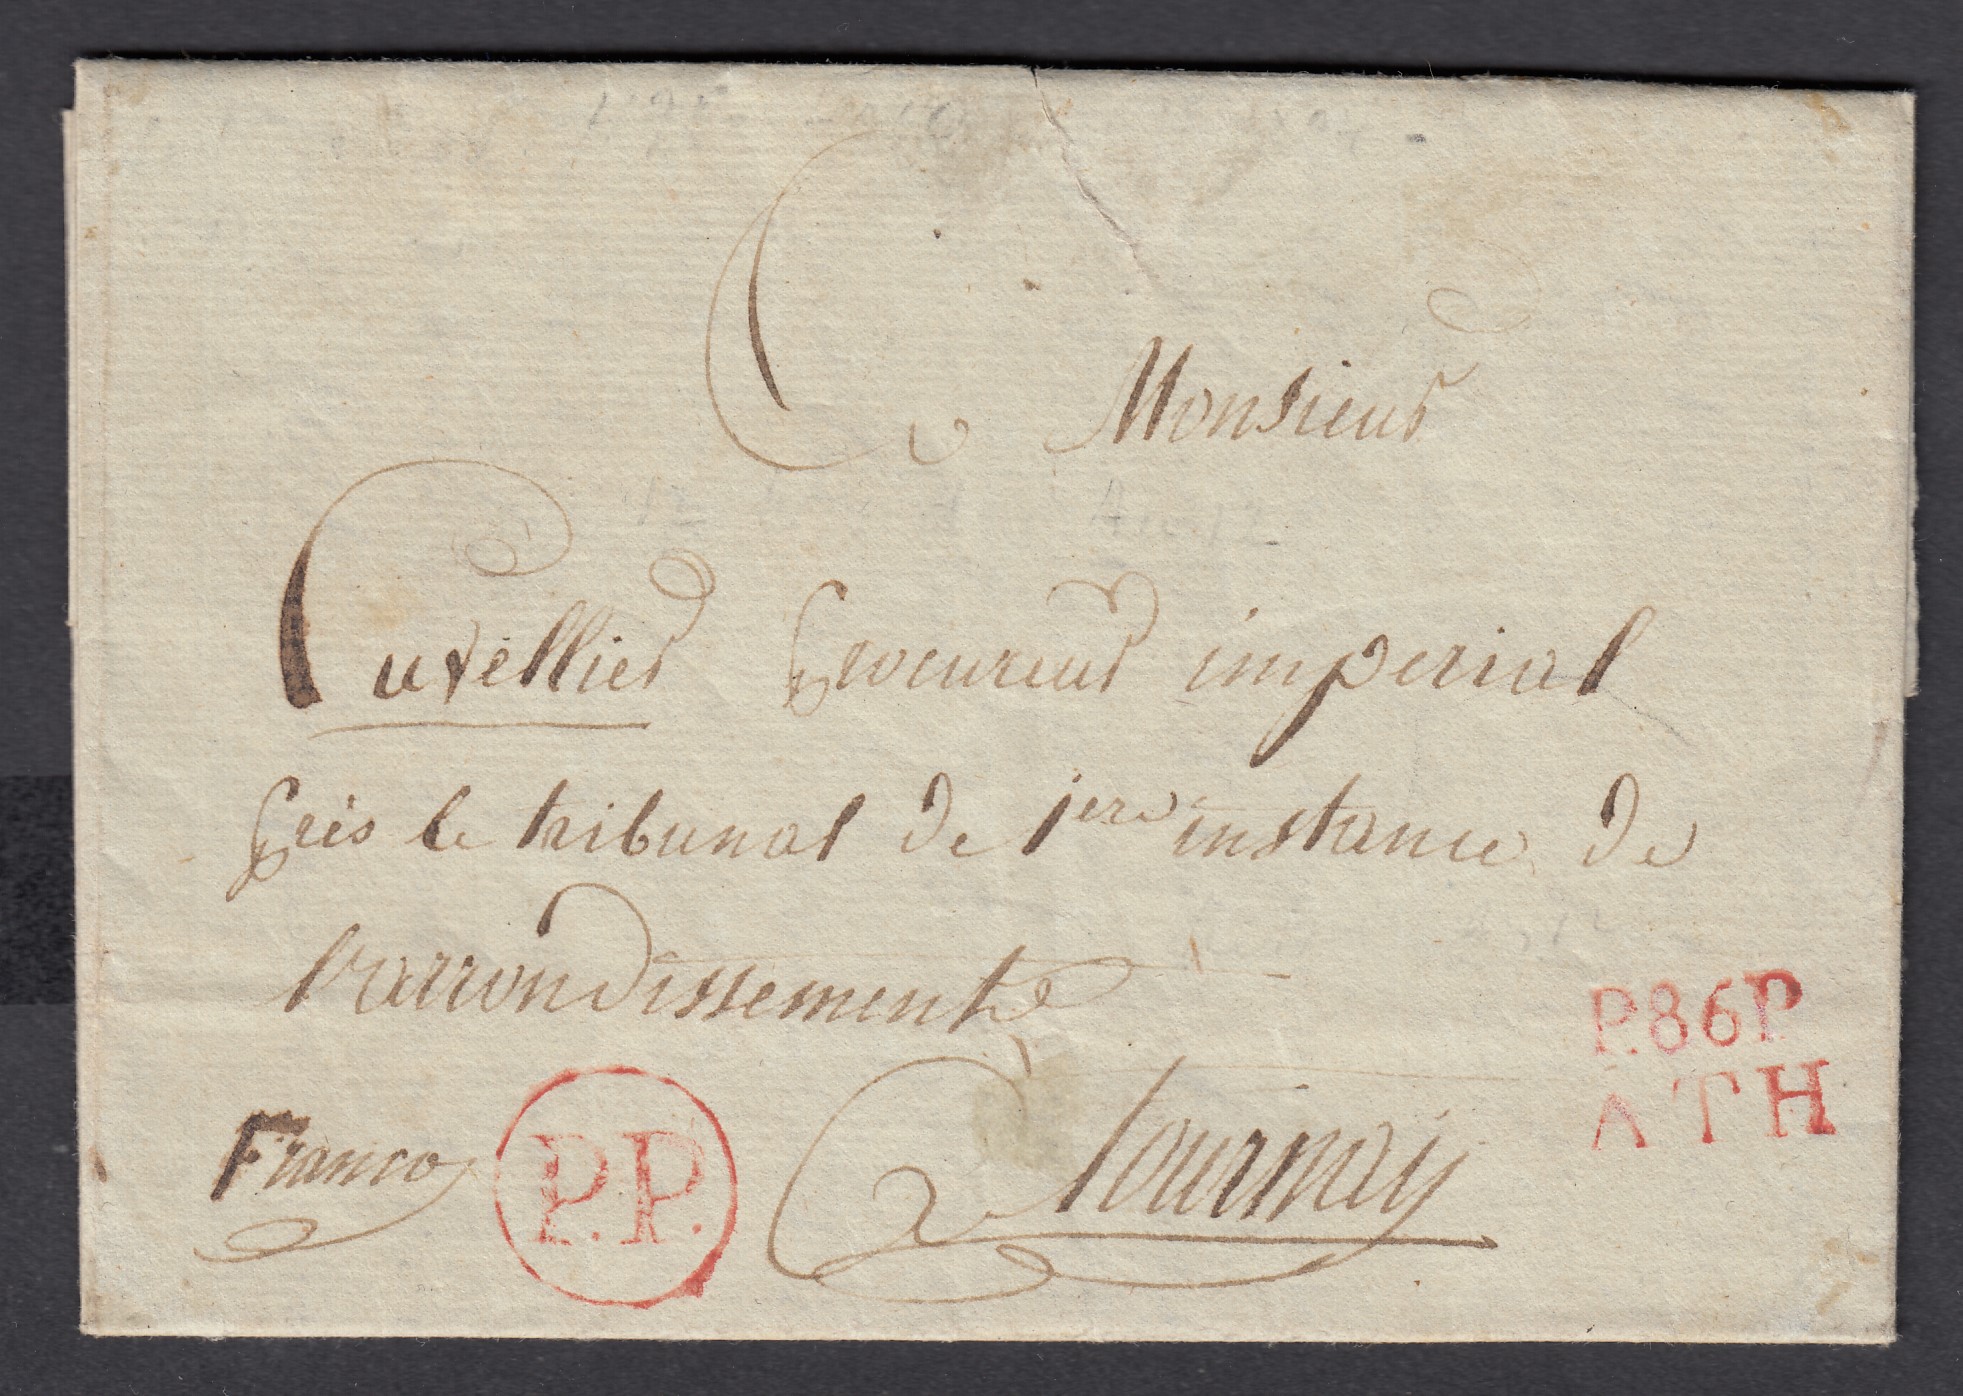 A Monsieur
Cuvellier procureur imperial
près le tribunal de 1ere instance de
l'arrondissement de
Tournay
Franco
P.P.
P.86P.
ATH